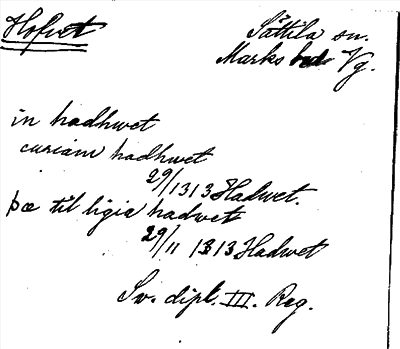 Hofvet
Sättila sn.
Marks hd Vg.
in hadhwet
curiam hadhwet
29/1313 Hadwet.
þæ til ligia hadwet
29/11 1313 Hadwet
Sv. dipl. III. Reg.